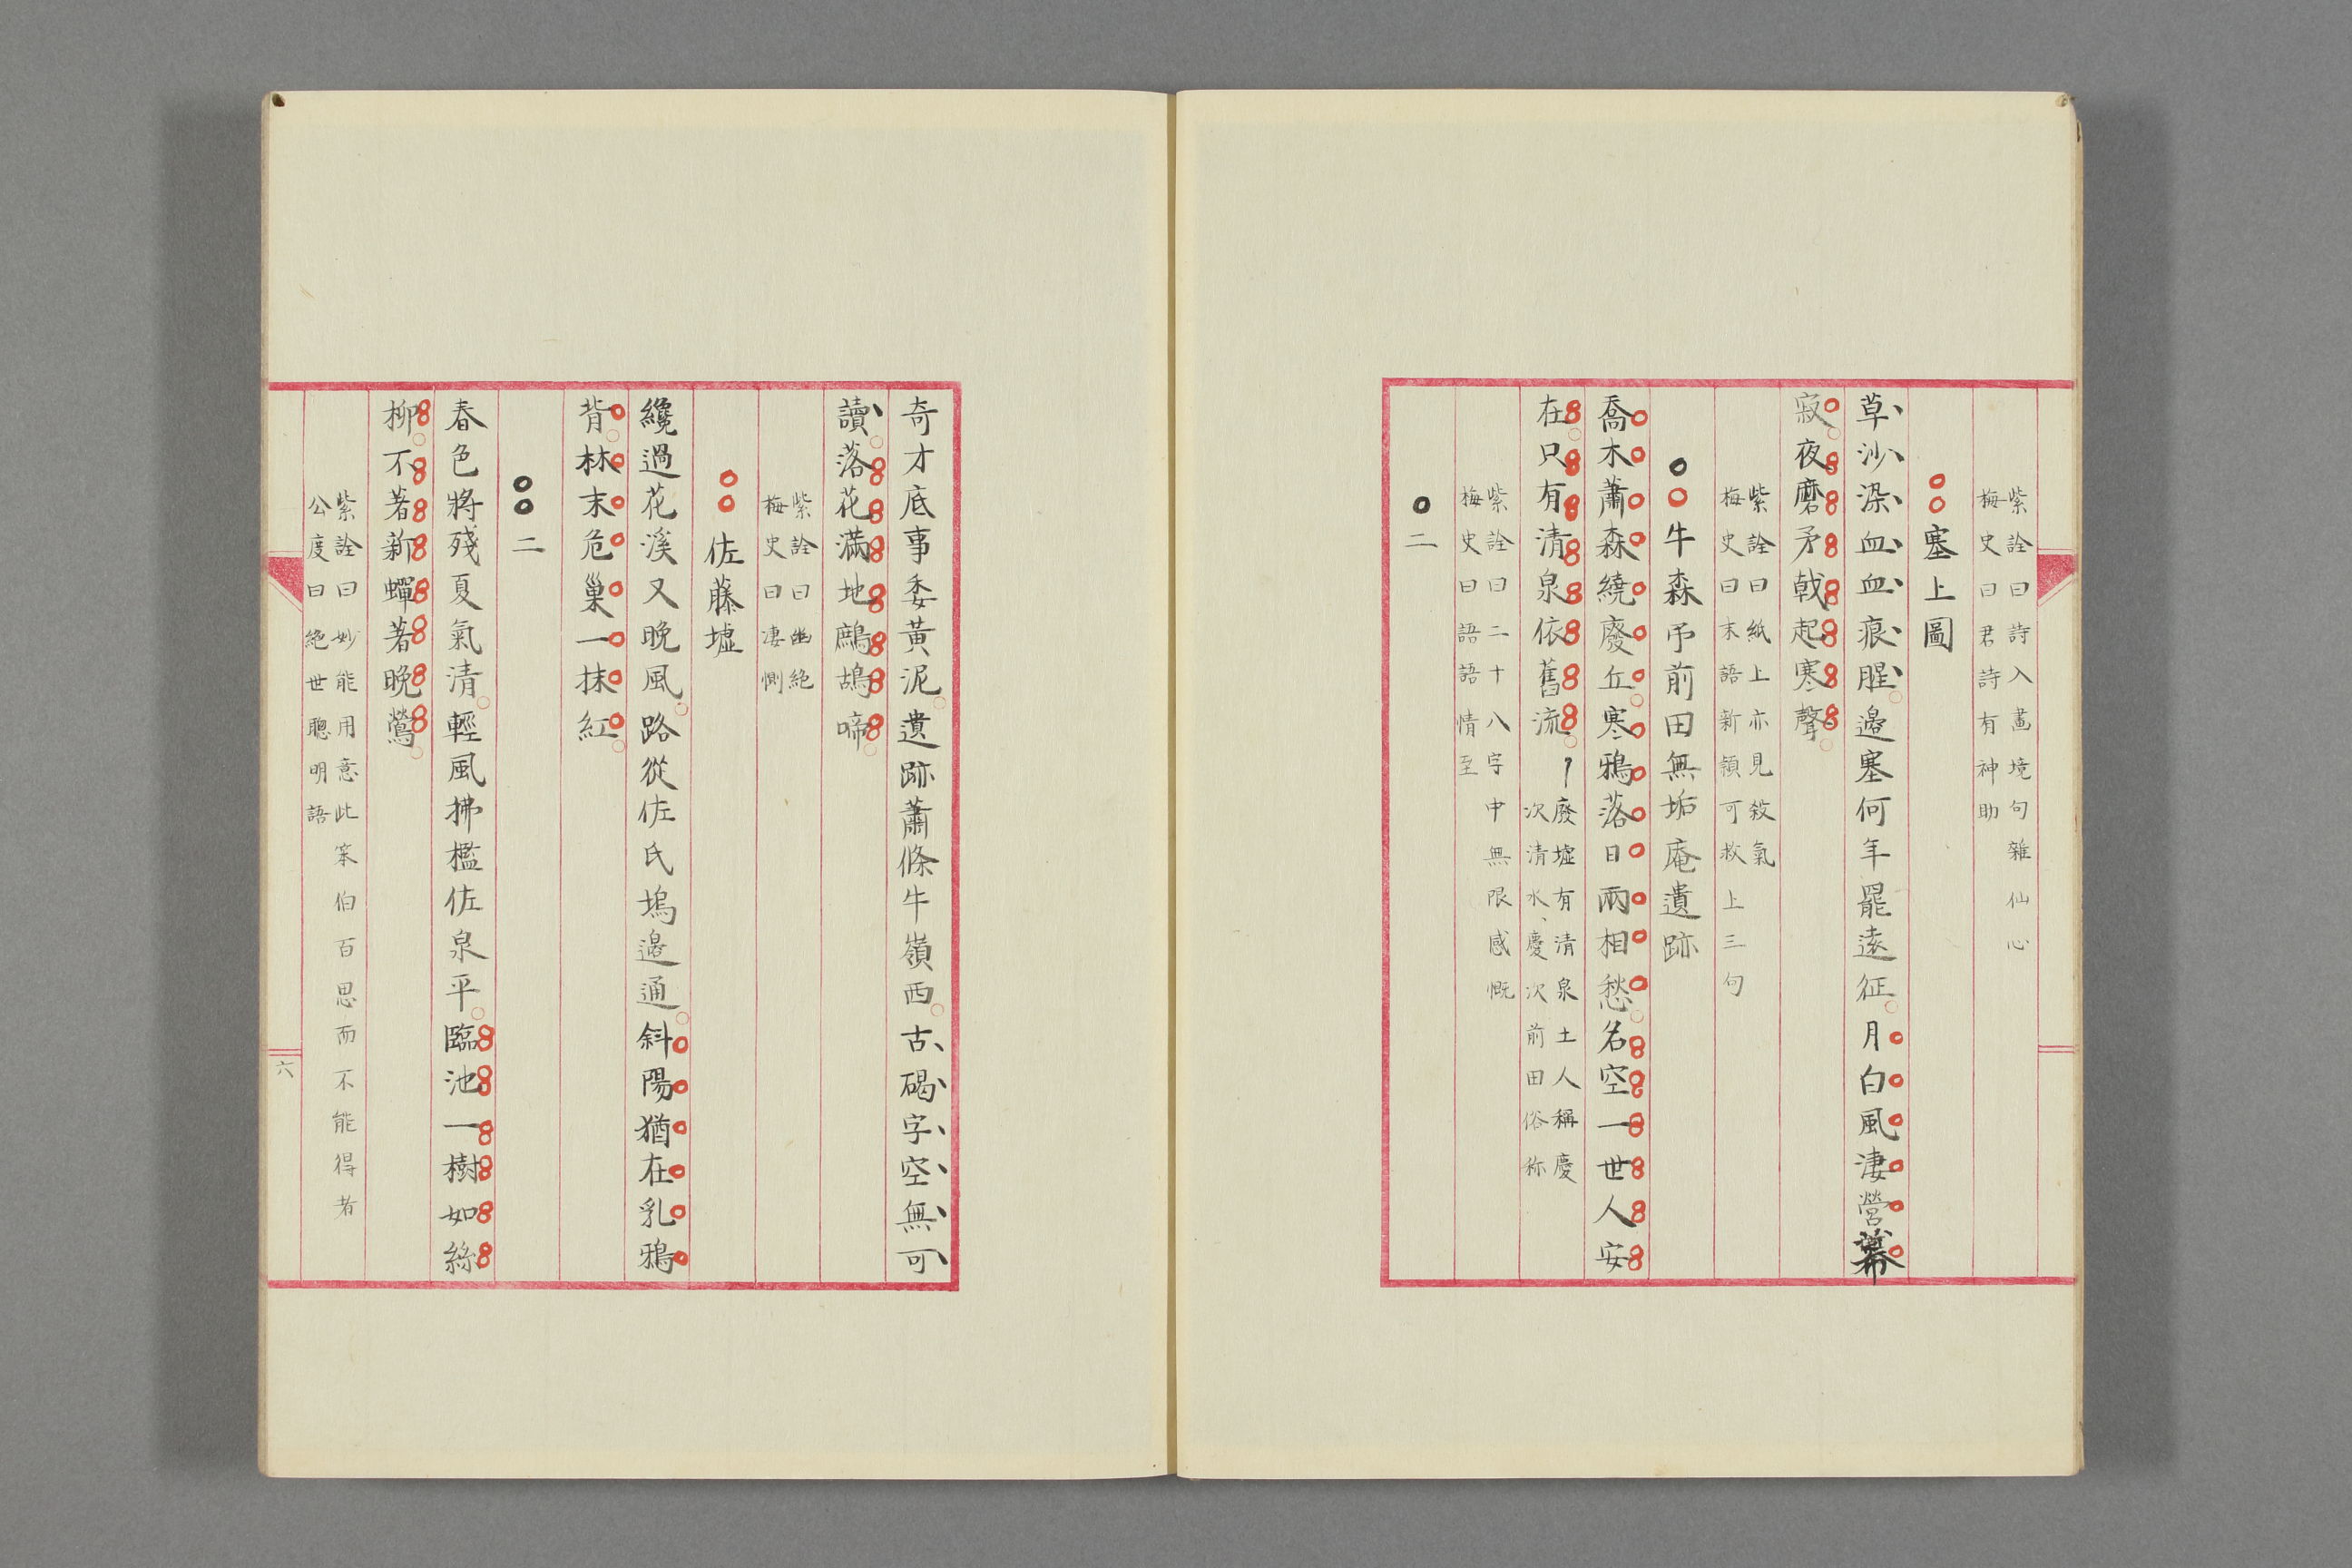 紫詮曰詩入畫境句雜仙心
梅史曰君詩有神助
塞上圖
草沙染血血痕腥邊塞何年罷遠征月白風淒營幕
寂夜磨矛戟起寒聲
紫詮曰紙上亦見殺氣
梅史曰末語新領可救上三句
牛森予前田無垢庵遺跡
喬木蕭森繞廢丘寒鴉落日兩相愁名空一世人安
在只有清泉依舊流
廢墟有清泉土人稱慶
次清水、慶次前田俗称
紫詮曰二十八字中無限感慨
梅史曰語語情至
二
奇才底事委黃泥遺跡蕭條牛嶺西古碣字空無可
讀落花滿地鷓鴣啼
紫詮曰幽絕
梅史曰凄惻
佐藤墟
纔過花溪又晚風路從佐氏塢邊通斜陽猶在乳鴉
背林末危巢一抹紅
二
春色將殘夏氣清輕風拂檻佐泉平臨池一樹如絲
柳不著新蟬著晚鶯
紫詮曰妙能用意此笨伯百思而不能得者
公度曰絕世聰明語
六